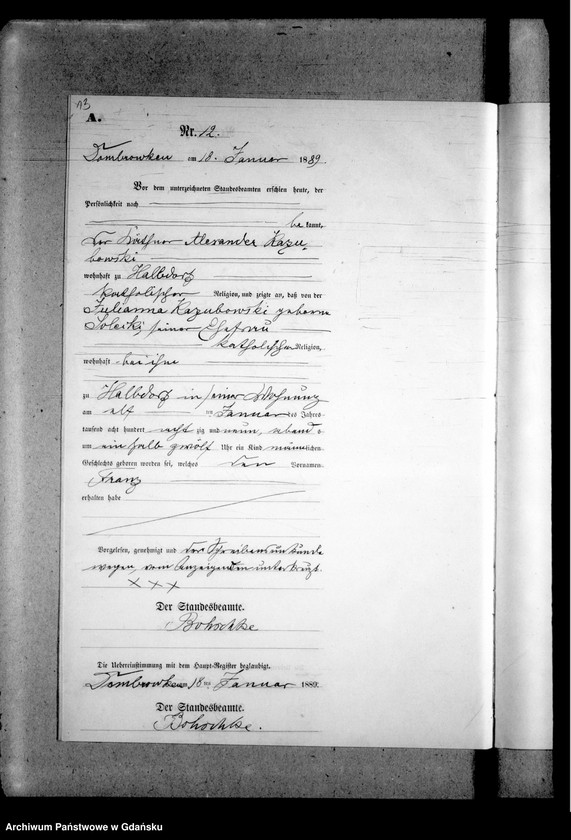 13
A.
Nr. 12.
Dombrowken am 18. Januar 1889.
Vor dem unterzeichneten Standesbeamten erschien heute, der
Persönlichkeit nach
be kannt,
der Käthner Alexander Kazu-
bowski
wohnhaft zu Halbdorf
katholischer Religion, und zeigte an, daß von der
Julianna Kazubowski geborne
Solecki, seiner Ehefrau
katholischer Religion,
wohnhaft bei ihm
zu Halbdorf in seiner Wohnung
am elf ten Januar des Jahres
tausend acht hundert acht zig und neun, abends
um ein halb zwölf Uhr ein Kind männlichen
Geschlechts geboren worden sei, welches den Vornamen
Franz
erhalten habe
Vorgelesen, genehmigt und der Schreibensunkunde
wegen, vom Anzeigenden unterkreuzt.
x x x
Der Standesbeamte.
Bohschke
Die Uebereinstimmung mit dem Haupt-Register beglaubigt.
Dombrowken am 18 ten Januar 1889.
Der Standesbeamte.
Bohschke.
Archiwum Państwowe w Gdańsku